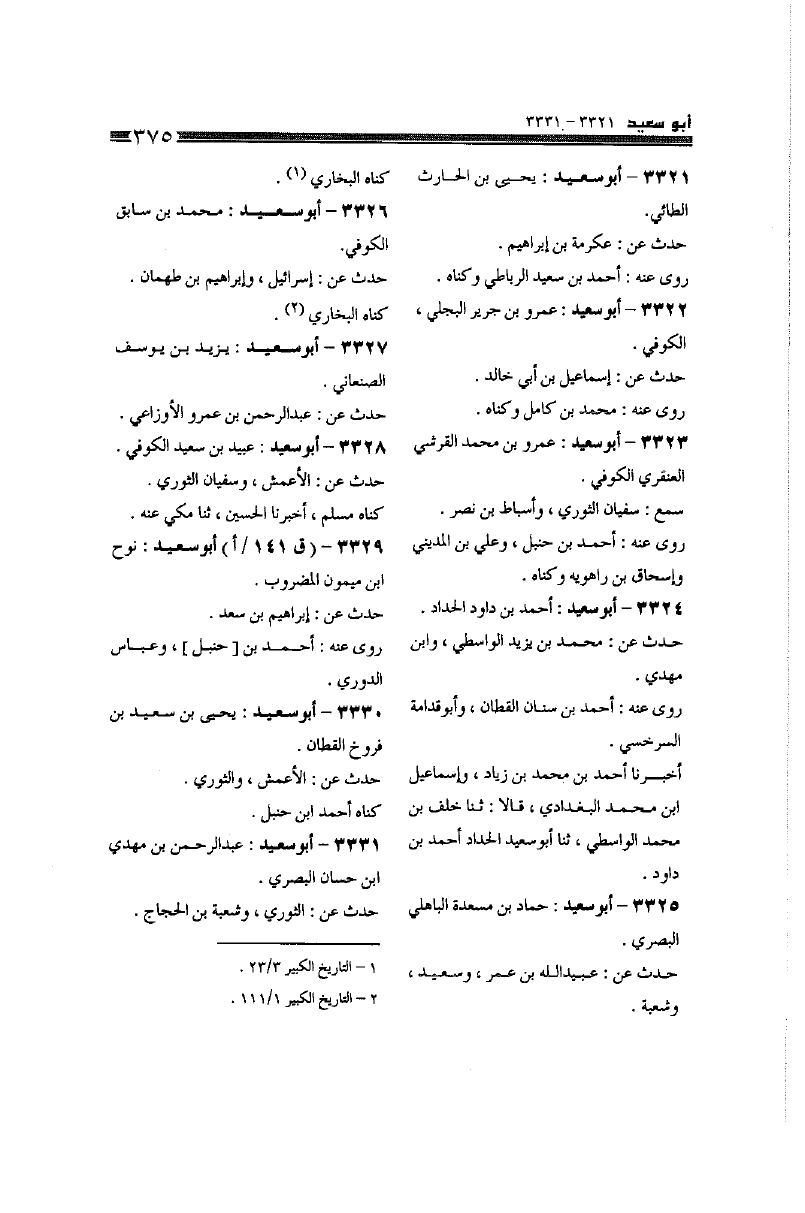 أبو سعيد ٣٣٢١ - ٣٣٣١
٣٧٥
٣٣٢١ - أبوسعـيـد : يحـيى بن الحـارث
الطائي.
حدث عن : عكرمة بن إبراهيم .
روى عنه : أحمد بن سعيد الرباطي وكناه .
٣٣٢٢ - أبوسعيد : عمرو بن جرير البجلي ،
الكوفي .
حدث عن : إسماعيل بن أبي خالد .
روى عنه : محمد بن كامل وكناه .
٣٣٢٣ - أبوسعيد : عمرو بن محمد القرشي
العنقري الكوفي .
سمع : سفيان الثوري ، وأسباط بن نصر .
روى عنه : أحمد بن حنبل ، وعلي بن المديني
وإسحاق بن راهويه وكناه .
٣٣٢٤ - أبوسعيد : أحمد بن داود الحداد .
حـدث عن : محـمـد بن يزيد الواسطي ، وابن
مهدي .
روى عنه : أحمد بن سنـان القطان ، وأبوقدامة
السرخسي .
أخبـرنا أحمد بن محمد بن زياد ، وإسماعيل
ابن محـمـد البـغـدادي ، قـالا : ثـنا خلف بن
محمد الواسطي ، ثنا أبوسعيد الحداد أحمد بن
داود .
٣٣٢٥ - أبوسعيد : حماد بن مسعدة الباهلي
البصري .
حدث عن : عبـيدالـله بن عمـر ، وسعـيـد ،
وشعبة .
كناه البخاري (١) .
٣٣٢٦ - أبوسـعـيـد : محـمـد بن سـابق
الكوفي.
حدث عن : إسرائيل ، وإبراهيم بن طهمان .
كناه البخاري (٢) .
٣٣٢٧ - أبوسـعيـد : يـزيـد بـن يـوسـف
الصنعاني .
حدث عن : عبدالرحمن بن عمرو الأوزاعي .
٣٣٢٨ - أبوسعيد : عبيد بن سعيد الكوفي .
حدث عن : الأعمش ، وسفيان الثوري .
كناه مسلم ، أخبرنا الحسين ، ثنا مكي عنه .
٣٣٢٩ - ( ق ١٤١ / أ ) أبوسعيـد : نوح
ابن ميمون المضروب .
حدث عن : إبراهيم بن سعد .
روى عنه : أحـمـد بن [ حنبـل ] ، وعبـاس
الدوري .
٣٣٣٠ - أبوسعيـد : يحيى بن سـعيـد بن
فروخ القطان .
حدث عن : الأعمش ، والثوري .
كناه أحمد ابن حنبل .
٣٣٣١ - أبوسعيد : عبدالرحـمن بن مهدي
ابن حسان البصري .
حدث عن : الثوري ، وشعبة بن الحجاج .
١ - التاريخ الكبير ٢٣/٣ .
٢ - التاريخ الكبير ١١١/١ .